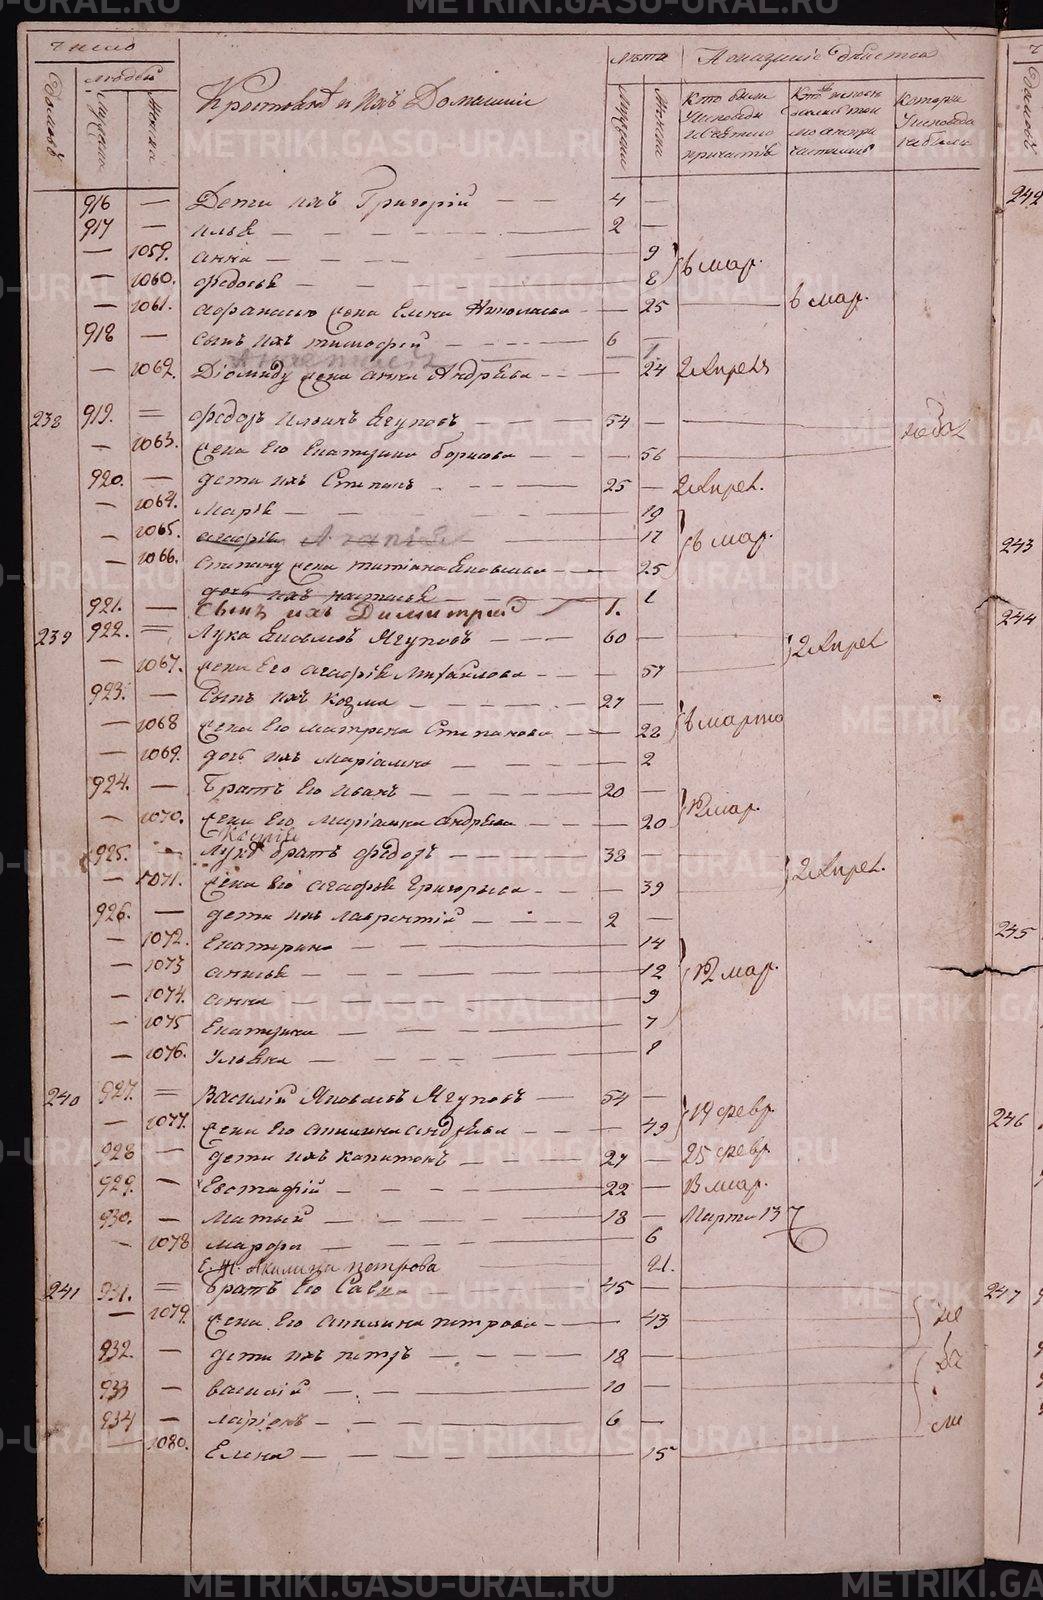 Число
людей
Лѣта
Показаніе дѣйства
Домовъ
Мужска
Женска
Крестьянѣ и ихъ Домашніи
Мужска
Женска
Кто были
У исповѣди
и св: таинъ
причастъ
Которы
У исповѣда
не были
916 — Дети ихъ Григорій — — 4 —
917 — Илья — — 2 —
— 1059. Анна — — 9
6 мар.
— 1060. Федосья — — 8
— 1061. Афанасью жена Елена Николаева — — 25 — 6 мар.
918 — Сынъ ихъ тимофей — — 6 —
— 1062. Діомиду жена Анна Андрѣева — — 24 2 Апреля
238 919. = Федоръ Ильинъ Ягуповъ — — 54 —
не был
— 1063. жена Его Екатерина Борисова — — 56
920. — дети ихъ Степанъ — — 25 — 2 Апрел.
— 1064. Марія — — 19
— 1065. Агафія Агапія — — 17
6 мар.
— 1066. Степану жена татіана Яковлева — — 25
дочь ихъ настасья — — 1
921. — Сынъ ихъ Димитрій 1.
239 922. = Лука Яковлевъ Ягуповъ — — 60 —
2 Апрел
— 1067. жена Его Агафія Михайлова — — 57
923. — Сынъ ихъ козма — — 27 —
6 марта
— 1068 жена Его матрена Степанова — — 28
— 1069. дочь ихъ маріамна — — 2
924. — Братъ Его иванъ — — 20 —
12 мар.
— 1070. жена Его Маріамна Андрѣева — — 20
925. — Лукѣ братъ федоръ — — 38 —
2 Апрел.
— 1071. жена Его Агафья Григорьева — — 39
926. — дети ихъ лаврентій — — 2 —
— 1072. Екатерина — — 14
— 1073 анисья — — 12
12 мар.
— 1074. анна — — 9
— 1075 Екатерина — — 7
— 1076. Ульяна — — 1
240 927. = Василій Яковлевъ Ягуповъ — 54 —
14 февр.
— 1077. жена Его Апилина андрѣева — — 49
928 — дети ихъ капитонъ — — 27 — 25 февр.
929. — Евстафій — — 22 — 13 мар.
930. — Матвей — — 18 — Марта 13
— 1078 марфа — — 6
Е. Ж. Акилина петрова 21.
241 931. = Братъ Его Савва — 45 —
не
— 1079. жена Его Апилина петрова — — 43
932. — дети ихъ петръ — — 18 —
бы
933 — василій — — 10 —
934 — ларіонъ — — 6 —
ли
— 1080. Елена — — 15
242
243
244
245
246
247
METRIKI.GASO-URAL.RU